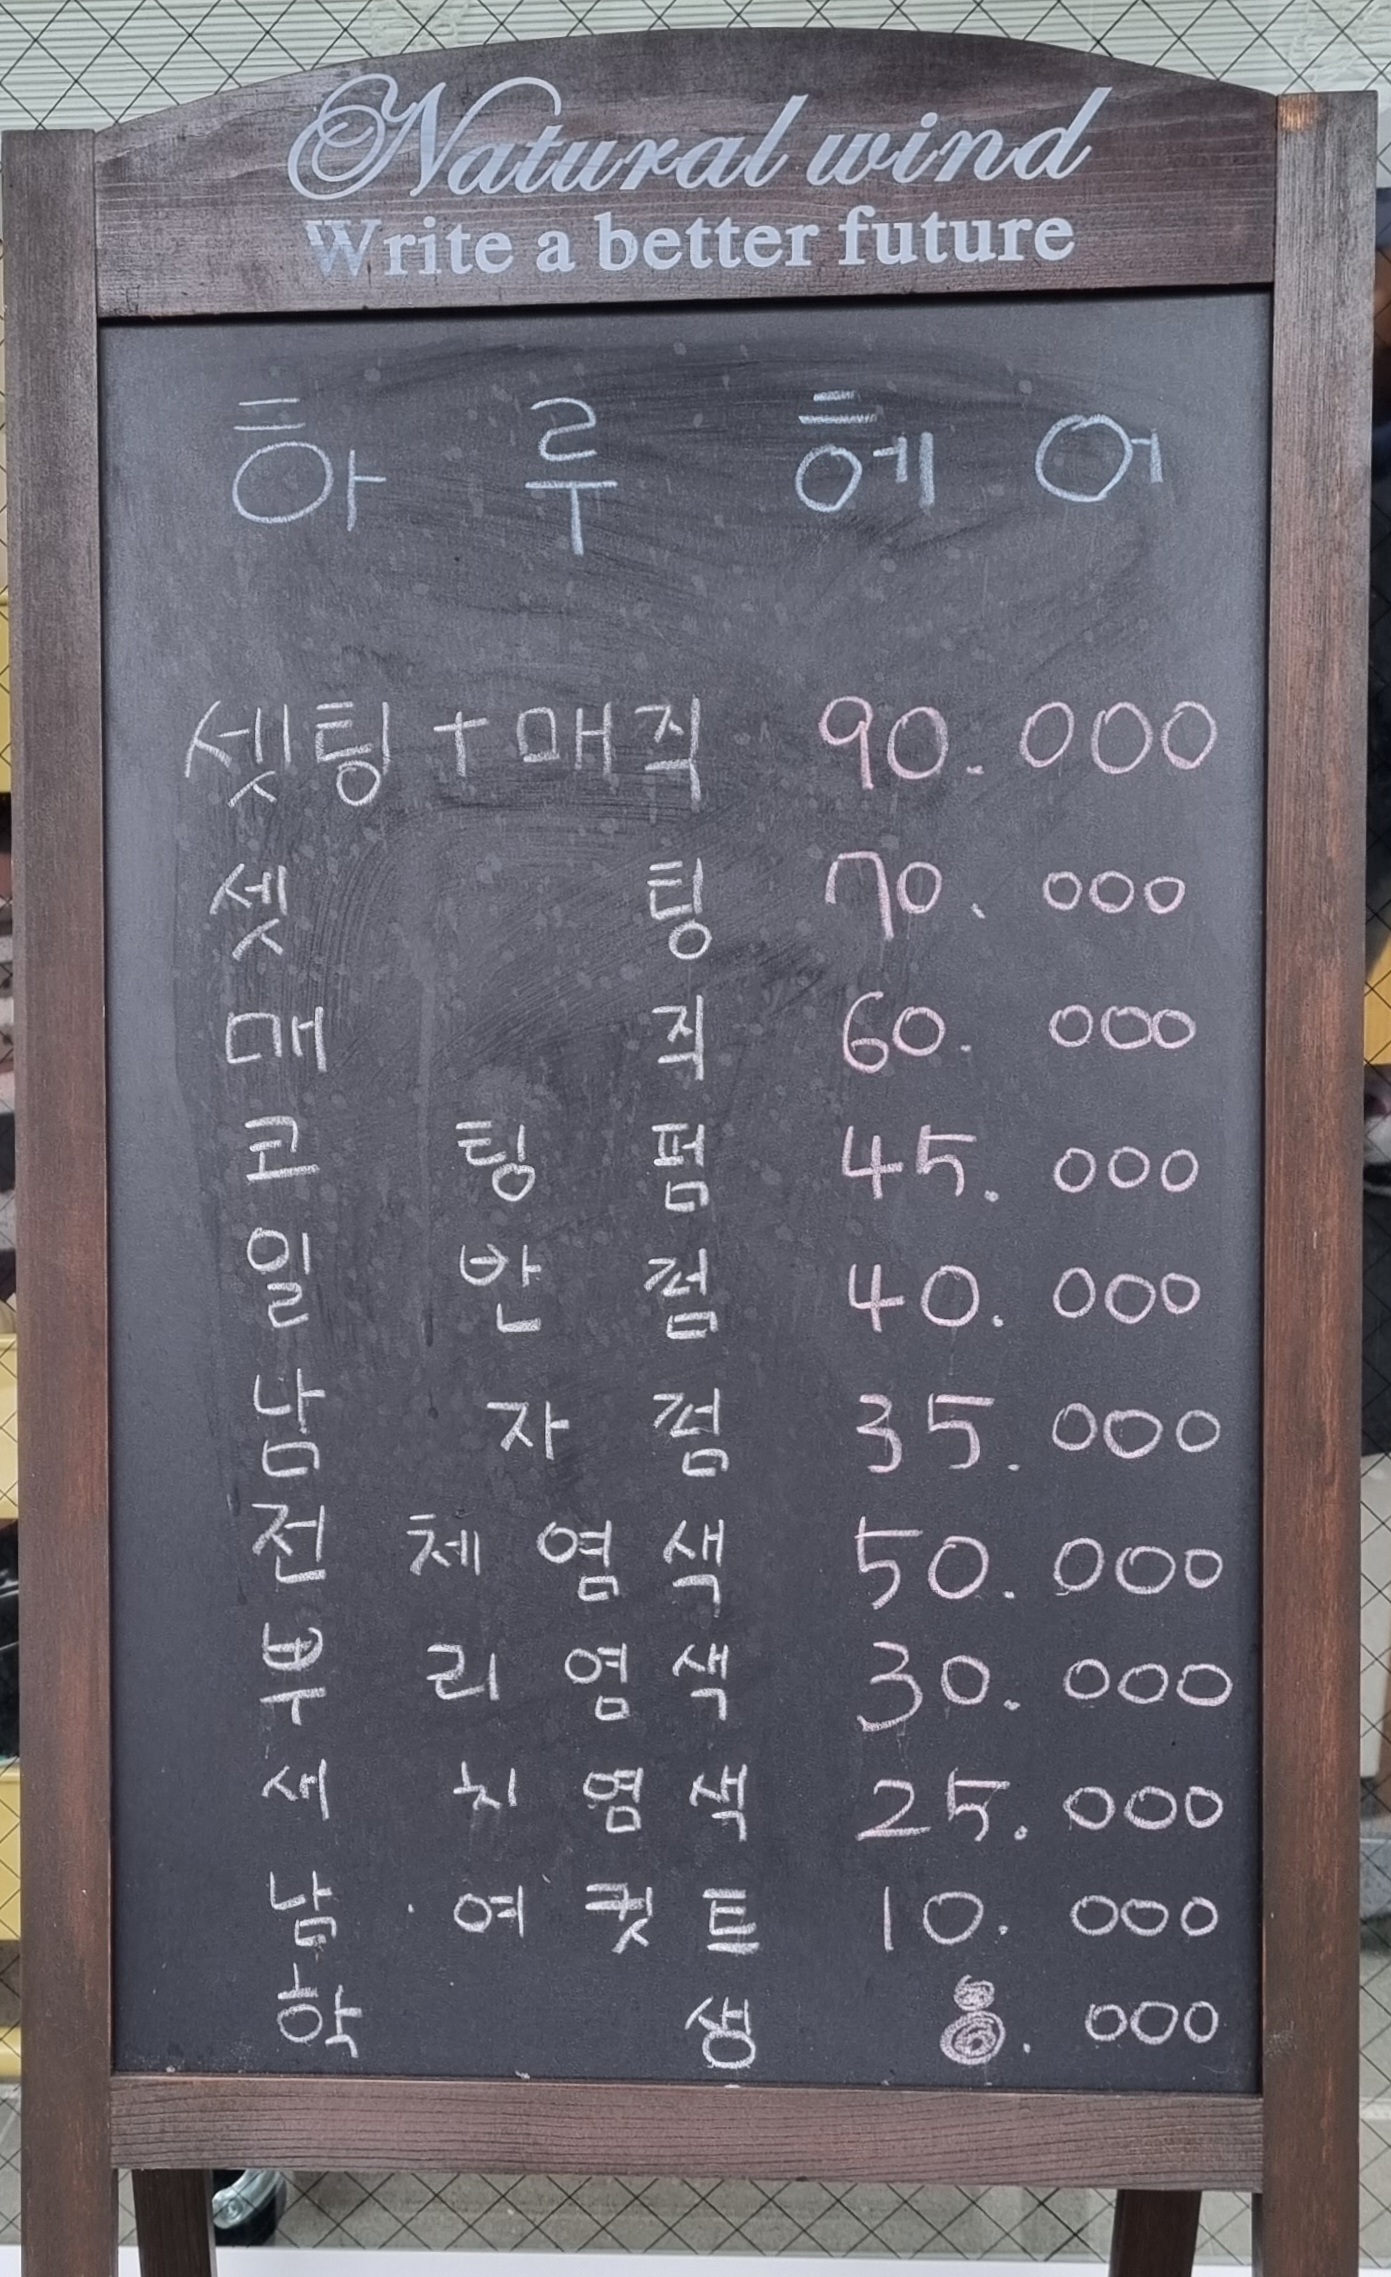 Natural wind
Write a better future
하루헤어
셋팅+매직 90.000
셋팅 70.000
매직 60.000
코팅펌 45.000
일반펌 40.000
남자펌 35.000
전체염색 50.000
뿌리염색 30.000
새치염색 25.000
남·여컷트 10.000
학생 8.000